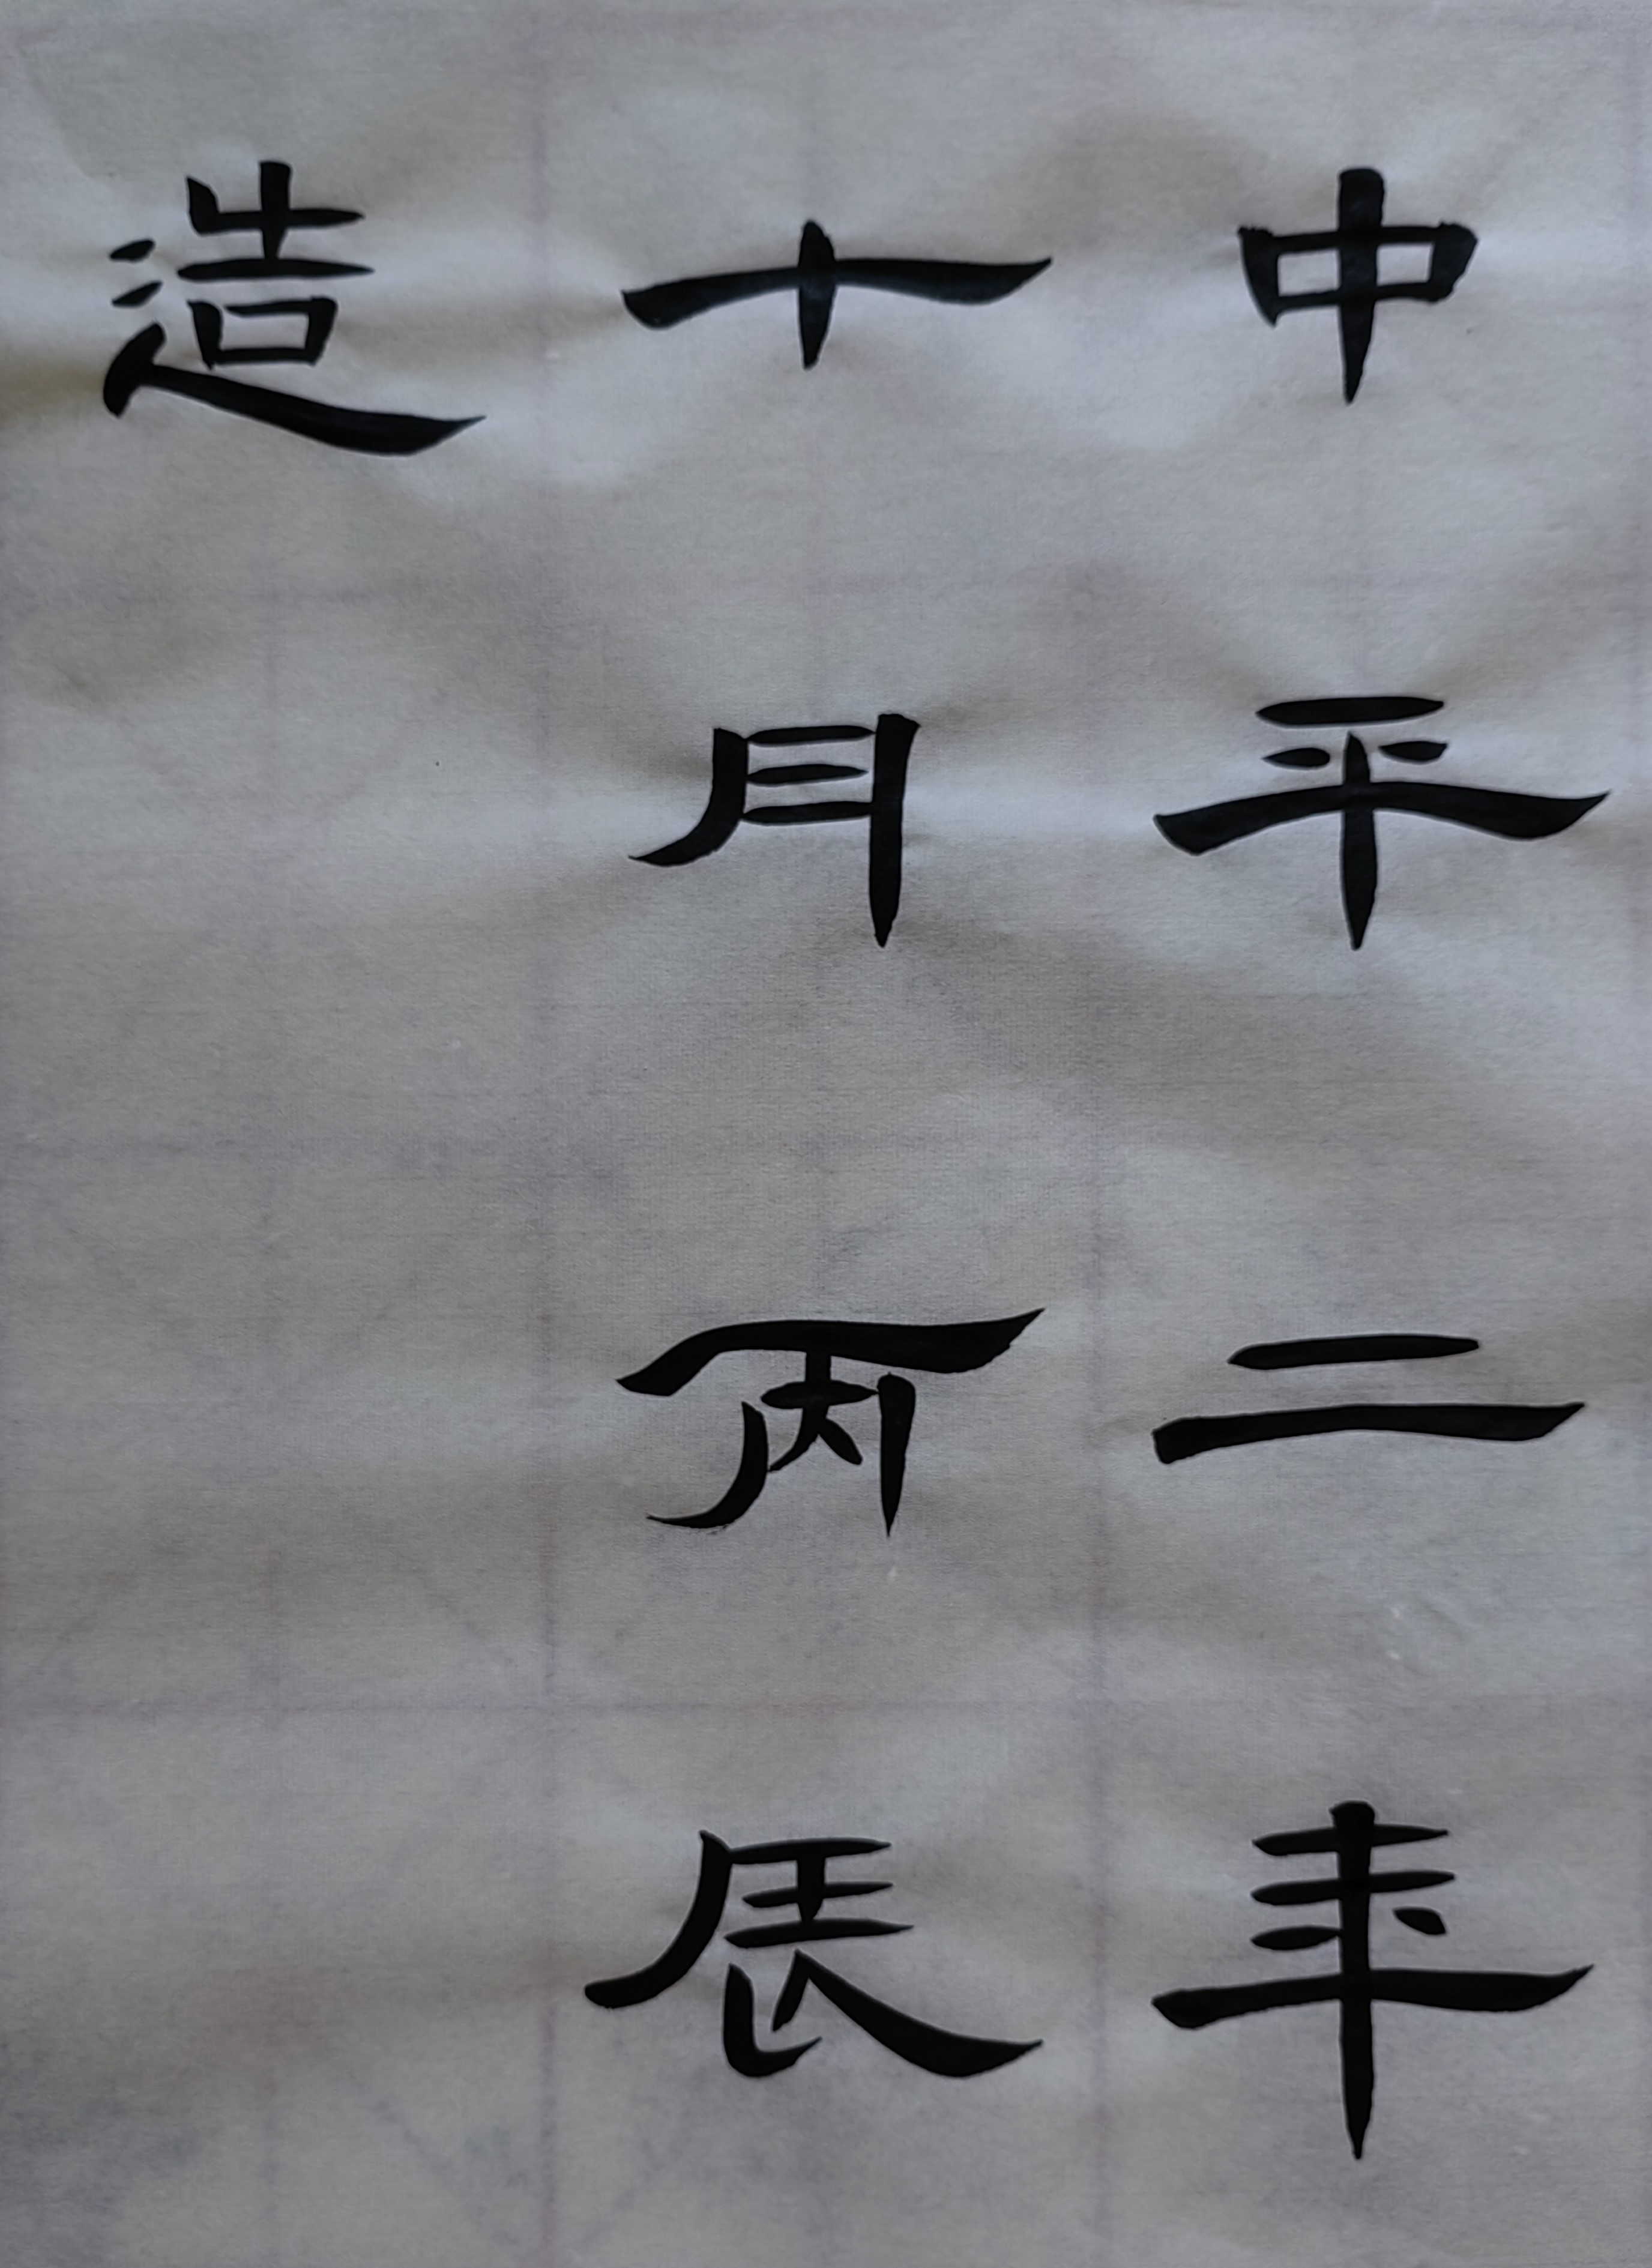 中平二年
十月丙辰
造